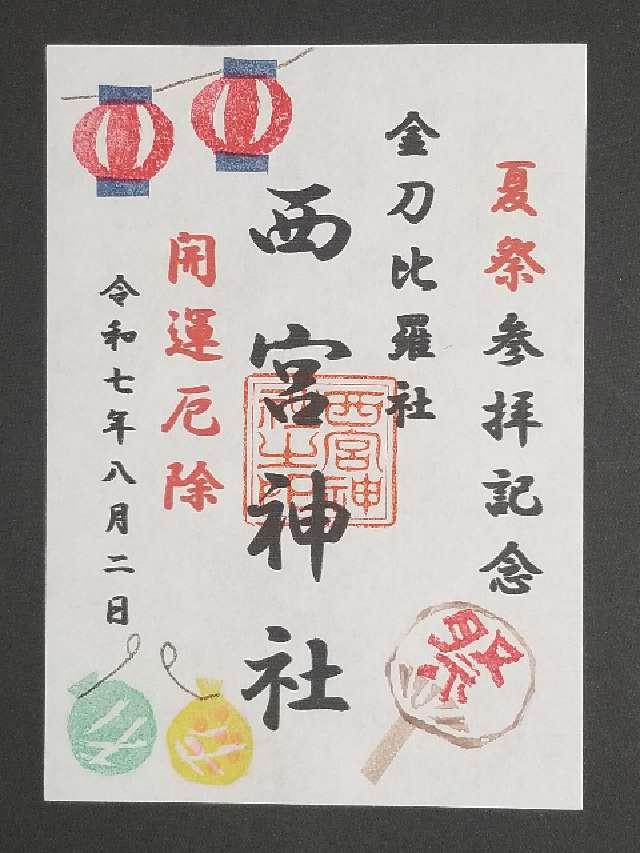 夏祭参拝記念
金刀比羅社
西宮神社
西宮神
社之印
開運厄除
令和七年八月二日